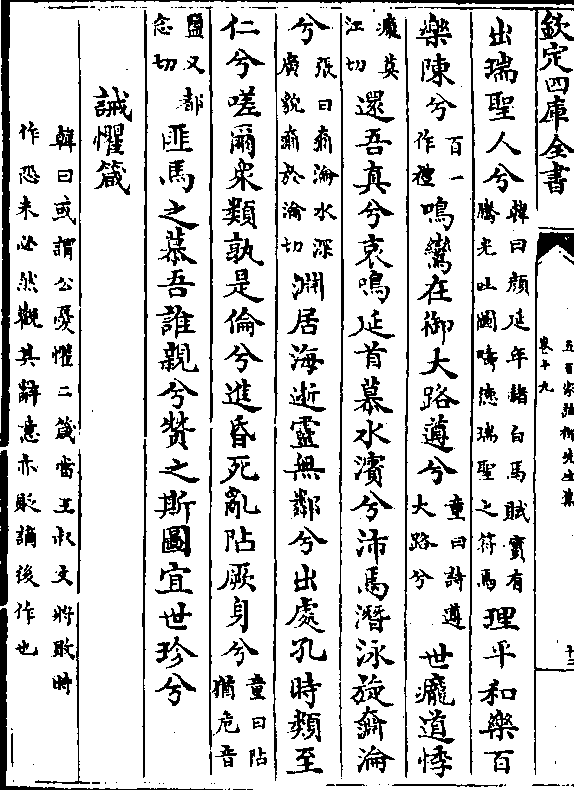 欽定四庫全書
五百家註柳先生集
卷十九
出瑞聖人兮韓曰顔延年赭白馬賦實有騰光吐圖疇德瑞聖之符焉理平和樂百
樂陳兮百一作禮鳴鸞在御大路遵兮童曰詩遵大路兮世痝道悖
痝莫江切還吾真兮哀鳴延首慕水濱兮沛焉潛泳旋奫淪
兮張曰奫淪水深廣貌奫於淪切淵居海逝靈無鄰兮出處孔時類至
仁兮嗟爾衆類孰是倫兮進昏死亂阽厥身兮童曰阽猶危音
鹽又都念切匪馬之慕吾誰親兮贊之斯圖宜世珍兮
誡懼箴
韓曰或謂公憂懼二箴當王叔文將敗時
作恐未必然觀其辭意亦貶謫後作也